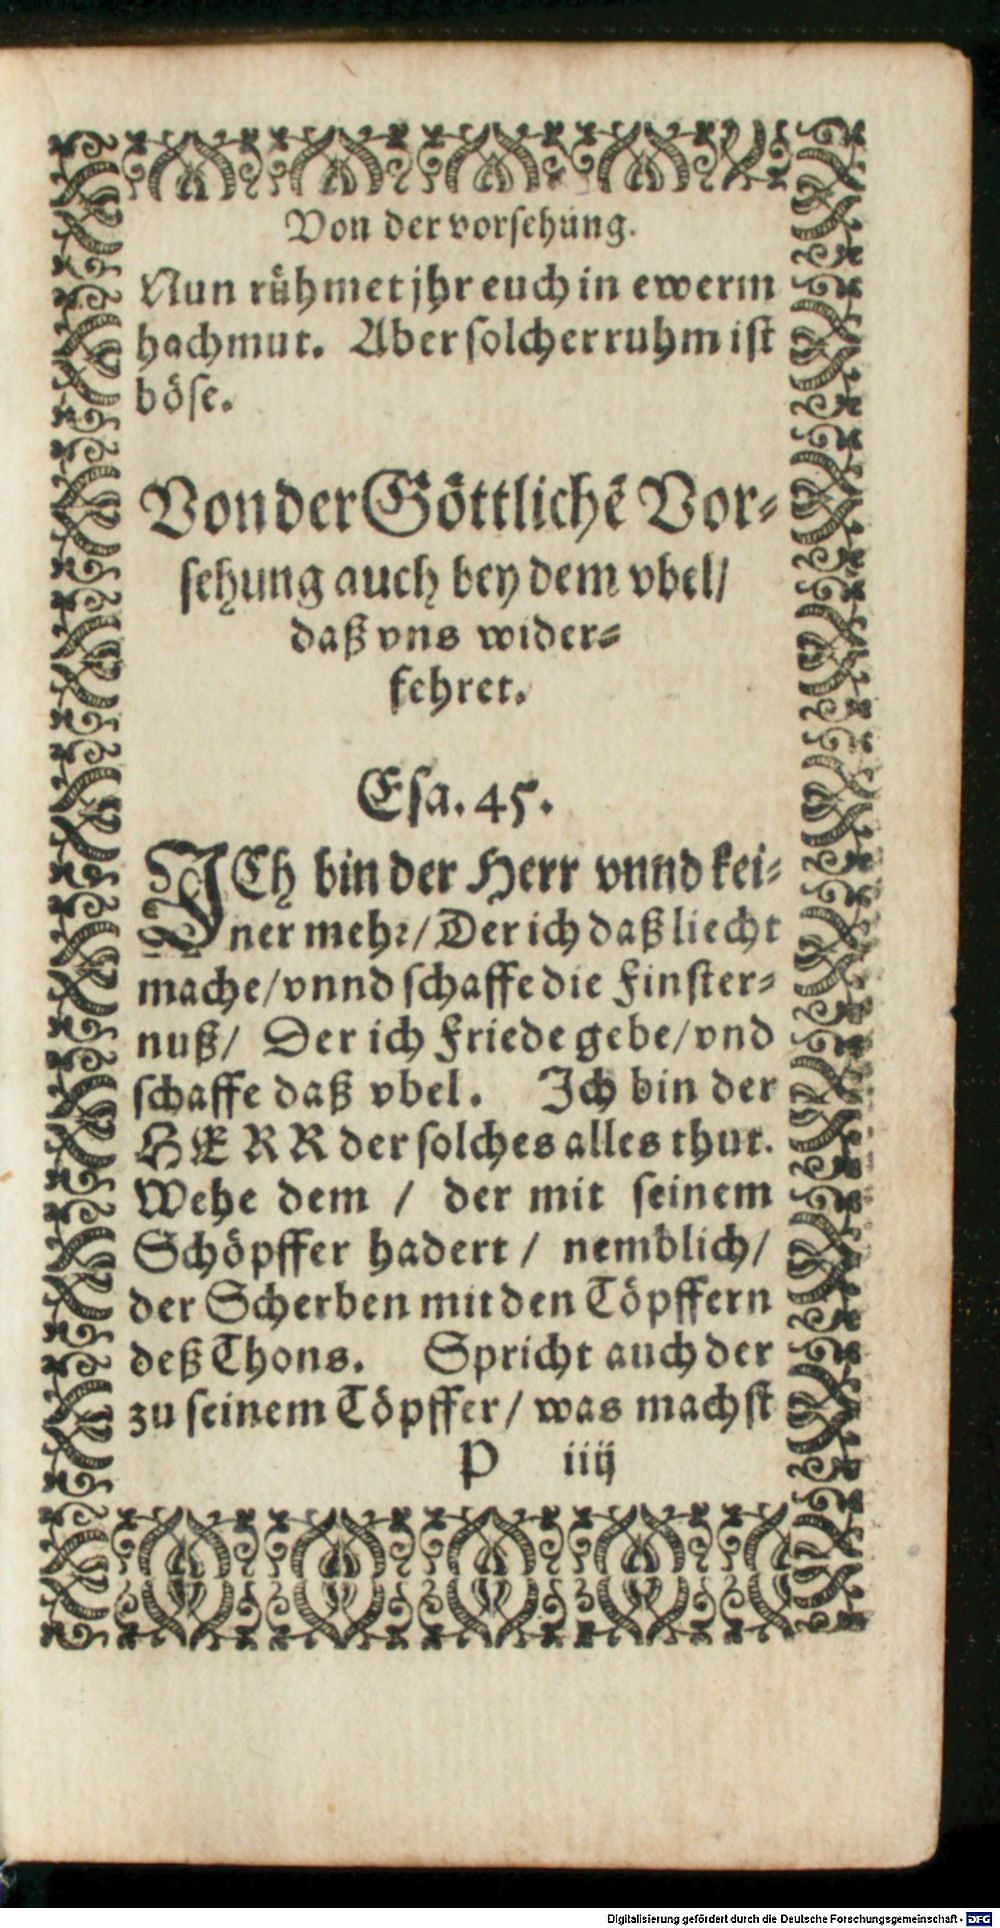 Von der vorsehung.
Nun rühmet jhr euch in ewerm
hochmut. Aber solcher ruhm ist
böse.
Von der Göttlichẽ Vor-
sehung auch bey dem vbel/
daß vns wider-
fehret.
Esa. 45.
ICh bin der Herr vnnd kei-
ner mehr/ Der ich daß liecht
mache/ vnnd schaffe die Finster-
nuß/ Der ich Friede gebe/ vnd
schaffe daß vbel. Ich bin der
HERR der solches alles thut.
Wehe dem / der mit seinem
Schöpffer hadert / nemblich/
der Scherben mit den Töpffern
deß Thons. Spricht auch der
zu seinem Töpffer/ was machst
P iiij
Digitalisierung gefördert durch die Deutsche Forschungsgemeinschaft - DFG